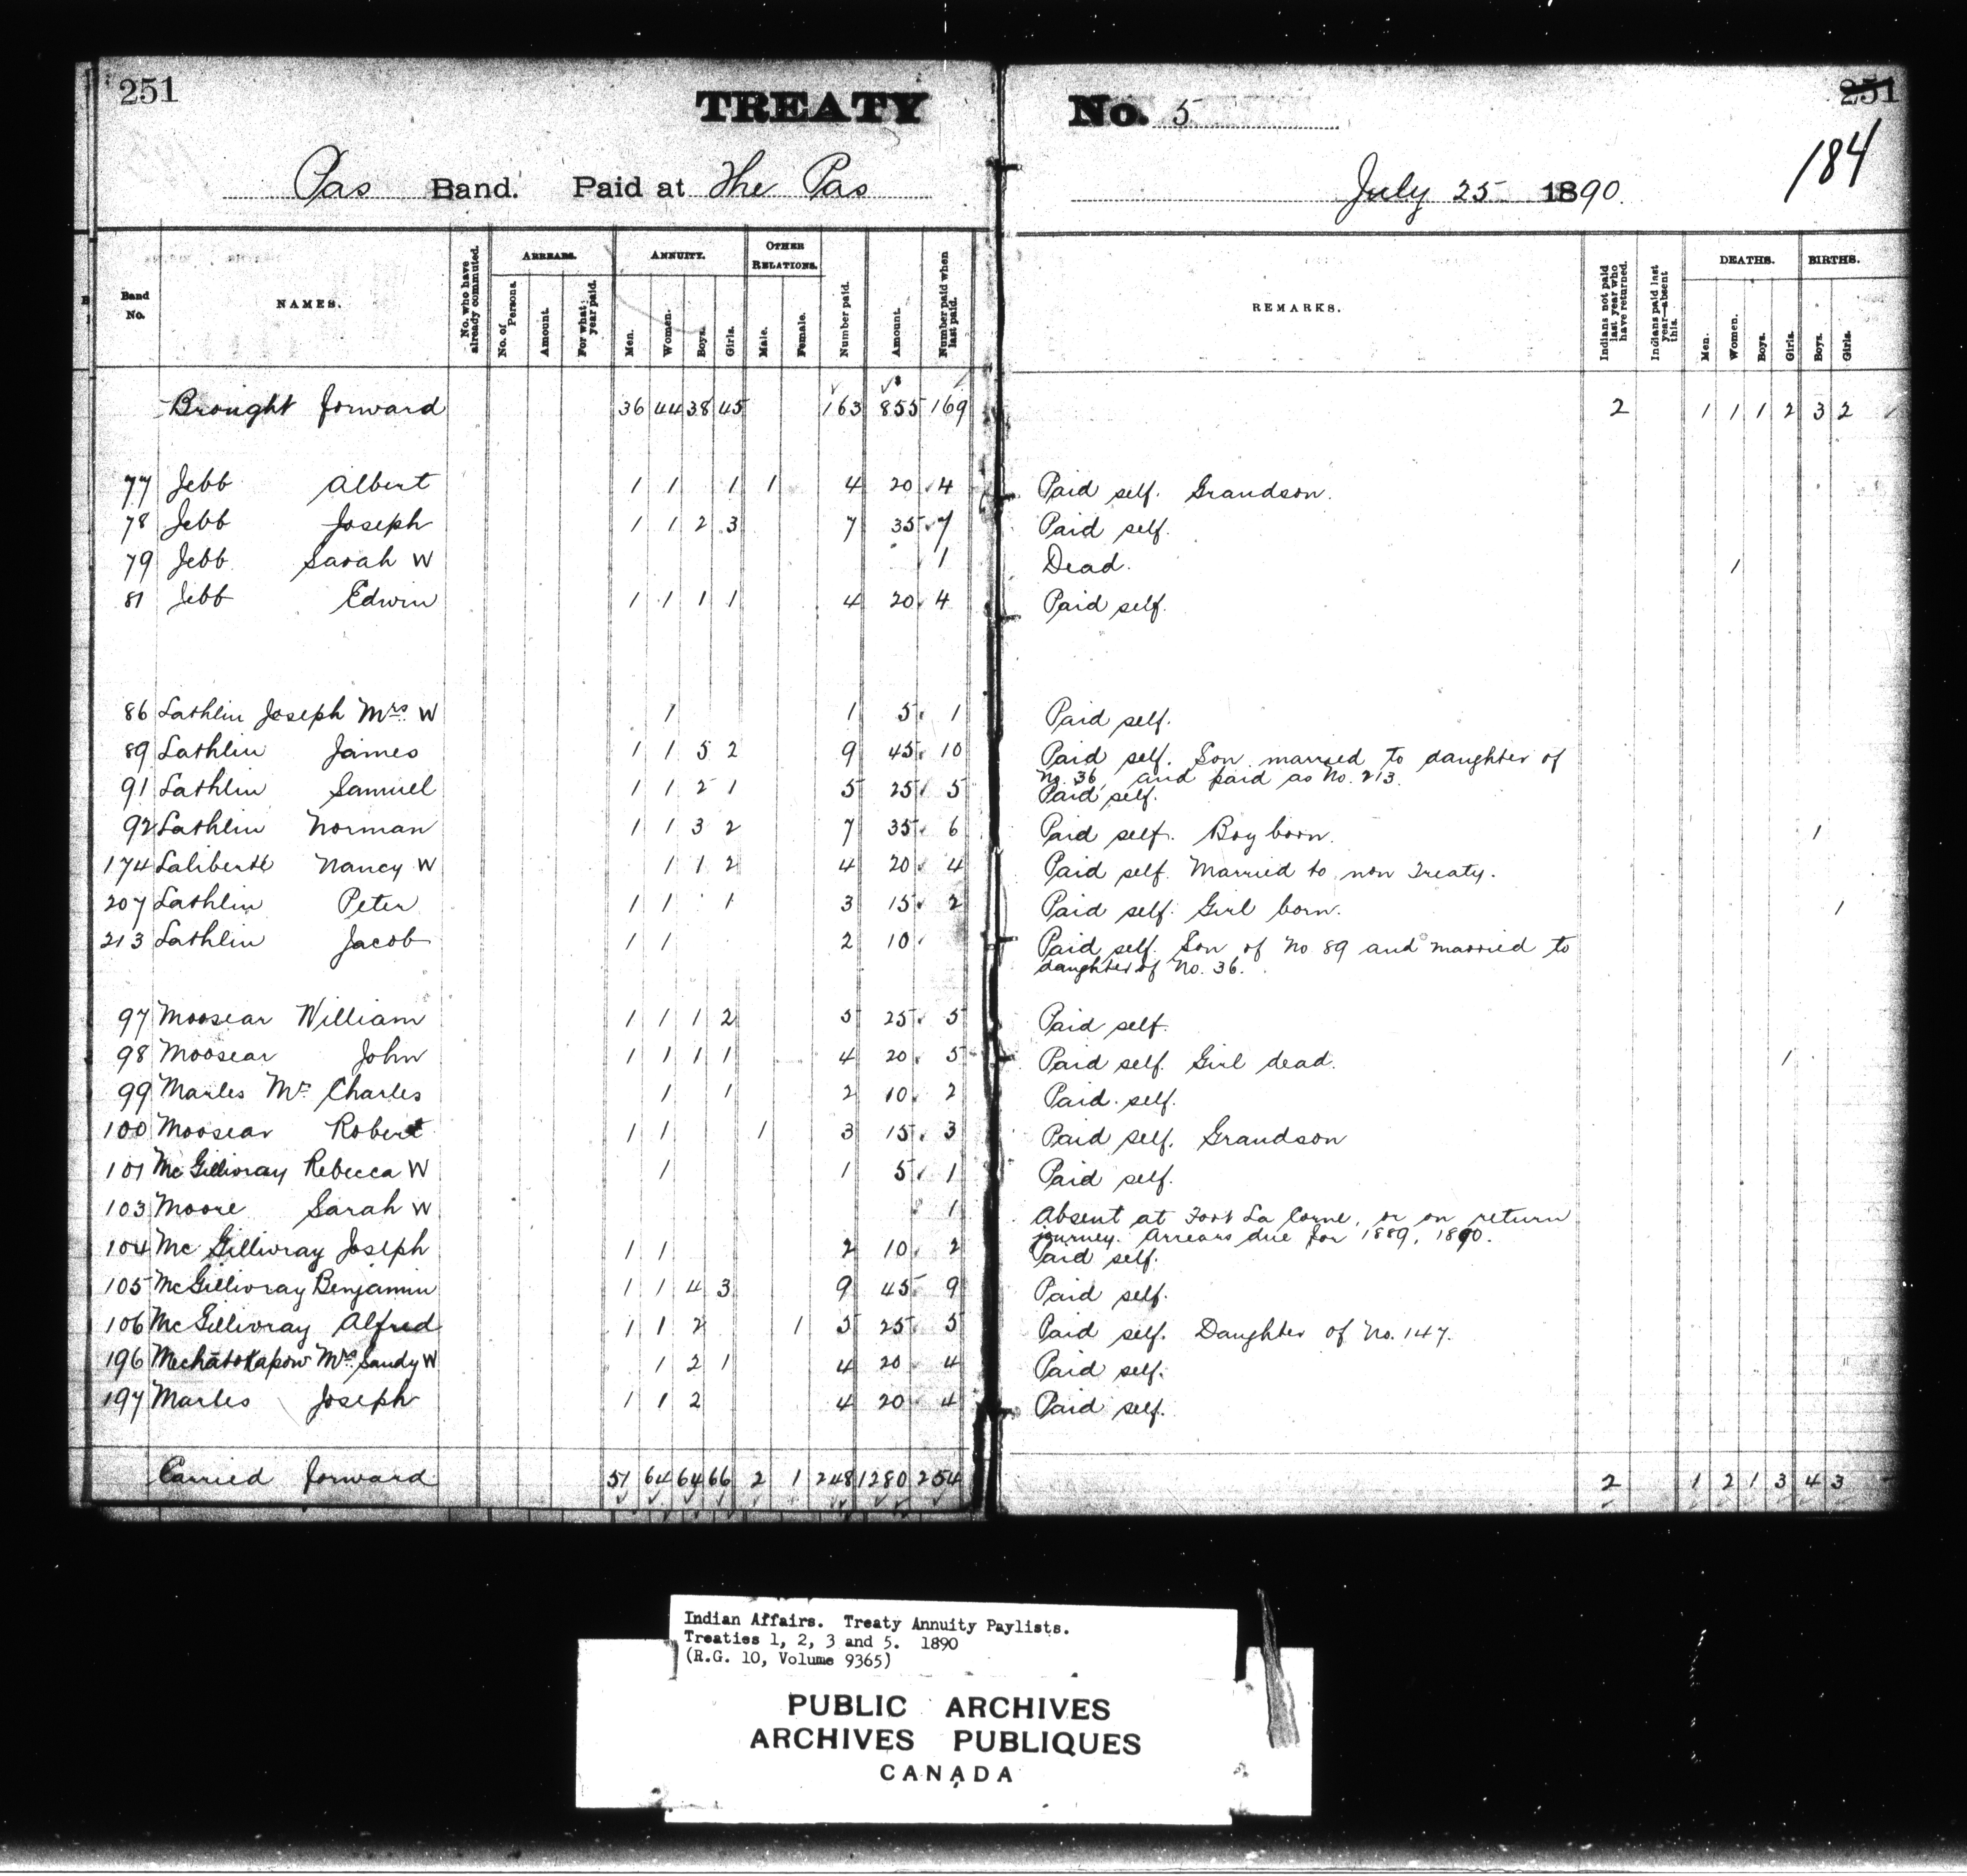 251
TREATY No. 5
251
184
Pas Band. Paid at The Pas July 25 1890.
Band No. NAMES. No. who have already commuted. ARREARS. No. of Persons. Amount. For what year paid. ANNUITY. Men. Women. Boys. Girls. OTHER RELATIONS. Male. Female. Number paid. Amount. Number paid when last paid. REMARKS. Indians not paid last year who have returned. Indians paid last year—absent this. DEATHS. Men. Women. Boys. Girls. BIRTHS. Boys. Girls.
Brought forward 36 44 38 45 163 855 169 2 1 1 1 2 3 2
77 Jebb Albert 1 1 1 1 4 20 4 Paid self. Grandson.
78 Jebb Joseph 1 1 2 3 7 35 7 Paid self.
79 Jebb Sarah W 1 Dead. 1
81 Jebb Edwin 1 1 1 1 4 20 4 Paid self.
86 Lathlin Joseph Mrs. W 1 1 5 1 Paid self.
89 Lathlin James 1 1 5 2 9 45 10 Paid self. Son married to daughter of
No. 36, and paid as No. 213.
91 Lathlin Samuel 1 1 2 1 5 25 5 Paid self.
92 Lathlin Norman 1 1 3 2 7 35 6 Paid self. Boy born. 1
174 Laliberté Nancy W 1 1 2 4 20 4 Paid self. Married to non Treaty.
207 Lathlin Peter 1 1 1 3 15 2 Paid self. Girl born. 1
213 Lathlin Jacob 1 1 2 10 Paid self. Son of No 89 and married to
daughter of No. 36.
97 Moosear William 1 1 1 2 5 25 5 Paid self.
98 Moosear John 1 1 1 1 4 20 5 Paid self. Girl dead. 1
99 Marles Mrs Charles 1 1 2 10 2 Paid self.
100 Moosear Robert 1 1 1 3 15 3 Paid self. Grandson
101 McGillivray Rebecca W 1 1 5 1 Paid self.
103 Moore Sarah W 1 Absent at Fort La Corne, or on return
journey. Arrears due for 1889, 1890.
104 McGillivray Joseph 1 1 2 10 2 Paid self.
105 McGillivray Benjamin 1 1 4 3 9 45 9 Paid self.
106 McGillivray Alfred 1 1 2 1 5 25 5 Paid self. Daughter of No. 147.
196 Mechatokapow Mrs. Sandy W 1 2 1 4 20 4 Paid self.
197 Marles Joseph 1 1 2 4 20 4 Paid self.
Carried forward 51 64 64 66 2 1 248 1280 254 2 1 2 1 3 4 3
Indian Affairs. Treaty Annuity Paylists.
Treaties 1, 2, 3 and 5. 1890
(R.G. 10, Volume 9365)
PUBLIC ARCHIVES
ARCHIVES PUBLIQUES
CANADA